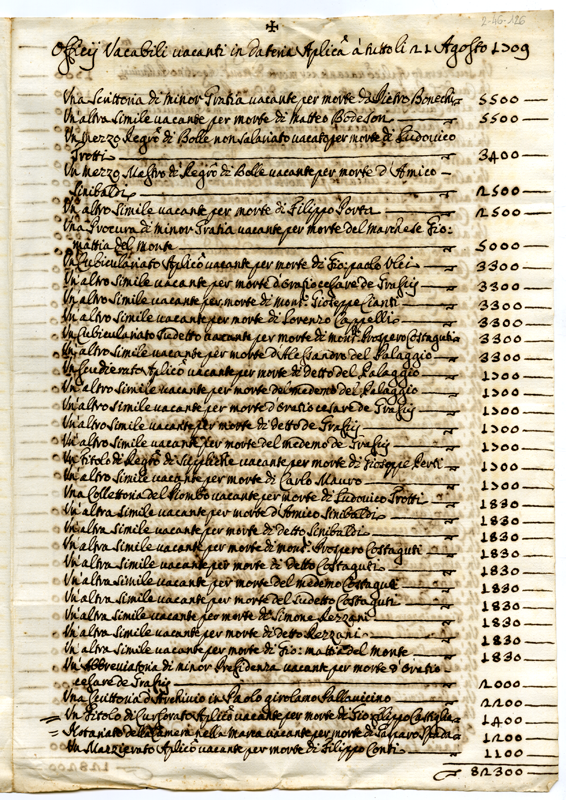 2-46-126
Officij Vacabili vacanti in Dataria Aplicã à tutto li 21 Agosto 1709
Una Scrittoria di minor Gratia vacante per morte da Pietro Bonechi 5500
Un'altra Simile vacante per morte di Matteo Bodeson 5500
Un Mezzo Regrõ di Bolle non salariato vacato per morte di Ludovico
Trotti 3400
Un Mezzo Mastro di Regrõ di Bolle vacante per morte d'Amico
Sinibaldi 2500
Un'altro Simile vacante per morte di Filippo Porta 2500
Una Procura di minor Gratia vacante per morte del marchese Gio:
mattia del monte 5000
Un Cubiculariato Aplicõ vacante per morte di Gio: paolo 3300
Un'altro Simile vacante per morte d'Oratio cesare de 3300
Un'altro Simile vacante per morte di mons.r Gioseppe Cianti 3300
Un'altro Simile vacante per morte di Lorenzo Cappelli 3300
Un Cubiculariato Sudetto vacante per morte di mons.r Prospero Costaguti 3300
Un'altro Simile vacante per morte d'Alesandro del Palaggio 3300
Un Scudierato Aplicõ vacante per morte di detto del Palaggio 1700
Un'altro Simile vacante per morte del medemo del Palaggio 1700
Un'altro Simile vacante per morte d'Oratio cesare de 1700
Un'altro Simile vacante per morte di detto de 1700
Un'altro Simile vacante per morte del medemo de 1700
Un Titolo di Regrõ di Suppliche vacante per morte di Gioseppe 1700
Un'altro Simile vacante per morte di Carlo Mauro 1700
Una Collettoria del Piombo vacante per morte di Ludovico Trotti 1830
Un'altra Simile vacante per morte d'Amico Sinibaldi 1830
Un'altra Simile vacante per morte di detto Sinibaldi 1830
Un'altra Simile vacante per morte di mons.r Prospero Costaguti 1830
Un'altra Simile vacante per morte di detto Costaguti 1830
Un'altra Simile vacante per morte del medemo Costaguti 1830
Un'altra Simile vacante per morte del sudetto Costaguti 1830
Un'altra Simile vacante per morte di Simone Rezzani 1830
Un'altra Simile vacante per morte di detto Rezzani 1830
Un'altra Simile vacante per morte di Gio: mattia del monte 1830
Un Abbreviatoria di minor Presidenza vacante per morte d'Oratio
cesare de 2000
Una Scrittoria d'Archivio in Paolo girolamo Pallavicino 2200
Un Titolo di Cursorato Aplicõ vacante per morte di Gio: Filippo Castiglia 1400
Notariato della Camera nella Marca vacante per morte di Gasparo 1200
Un Mazzierato Aplicõ vacante per morte di Filippo Conti 1100
82300